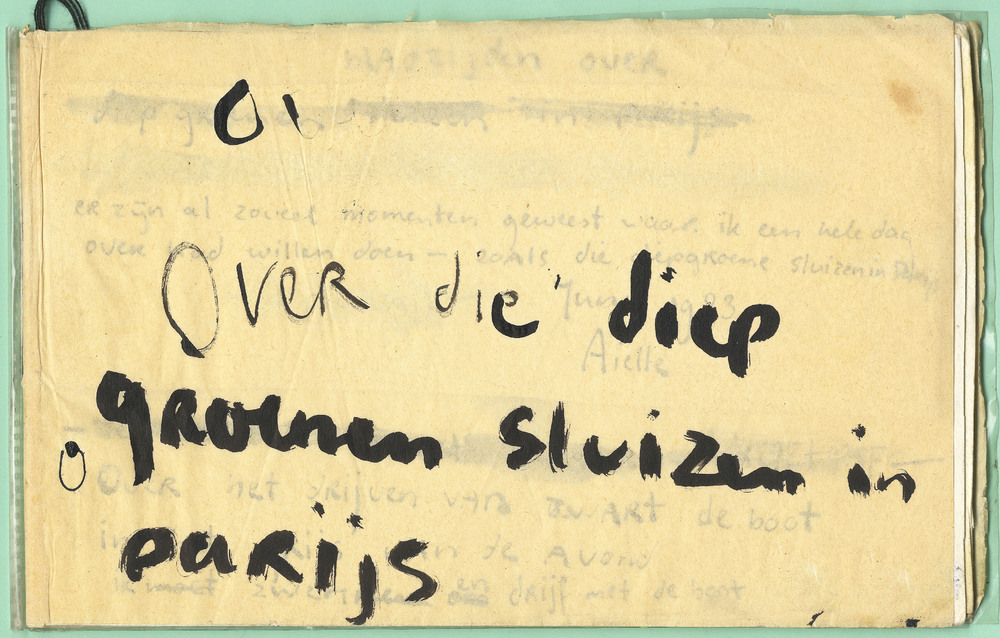 MADZIJDEN OVER
diep groenen sluizen in parijs
O
er zijn al zoveel momenten geweest waar ik een hele dag
over had willen doen - zoals die diepgroene sluizen in Parijs
Over die diep
Juni 1983
Arelle
groenen sluizen in
Over het drijven van zwart de boot
in van de Avond
parijs
ik moet zwemmen en drijf met de boot